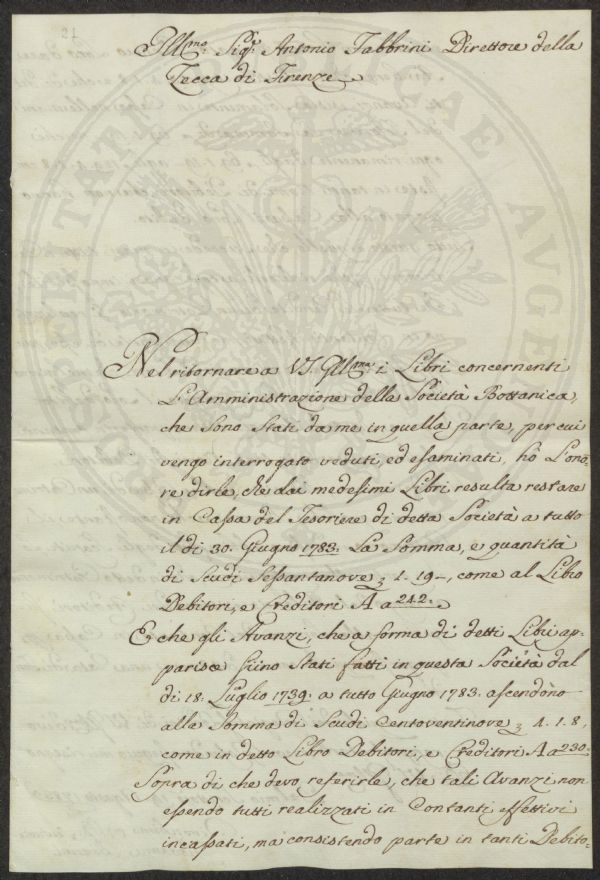 21
Illmo: Sigre: Antonio Fabbrini Direttore della
Zecca di Firenze
PROSPERITATI PUBLICAE AUGENDAE
Nel ritornare a VS. Illma: i Libri concernenti
L'Amministrazione della Società Bottanica,
che sono stati da me in quella parte, per cui
vengo interrogato veduti, ed esaminati, hò L'ono=
re dirle, che dai medesimi Libri resulta restare
in Cassa del Tesoriere di detta Società a tutto
il di 30. Giugno 1783. La Somma, e quantità
di Scudi Sessantanove 1. 19 –, come al Libro
Debitori, e Creditori A a 242.
E che gli Avanzi, che a forma di detti Libri ap=
parisce siino stati fatti in questa Società dal
di 18. Luglio 1739. a tutto Giugno 1783. ascendono
alla Somma di Scudi Centoventinove 4. 1. 8,
come in detto Libro Debitori, e Creditori A a 230.
Sopra di che devo referirle, che tali Avanzi non
essendo tutti realizzati in Contanti effettivi
incassati, ma consistendo parte in tanti Debito=